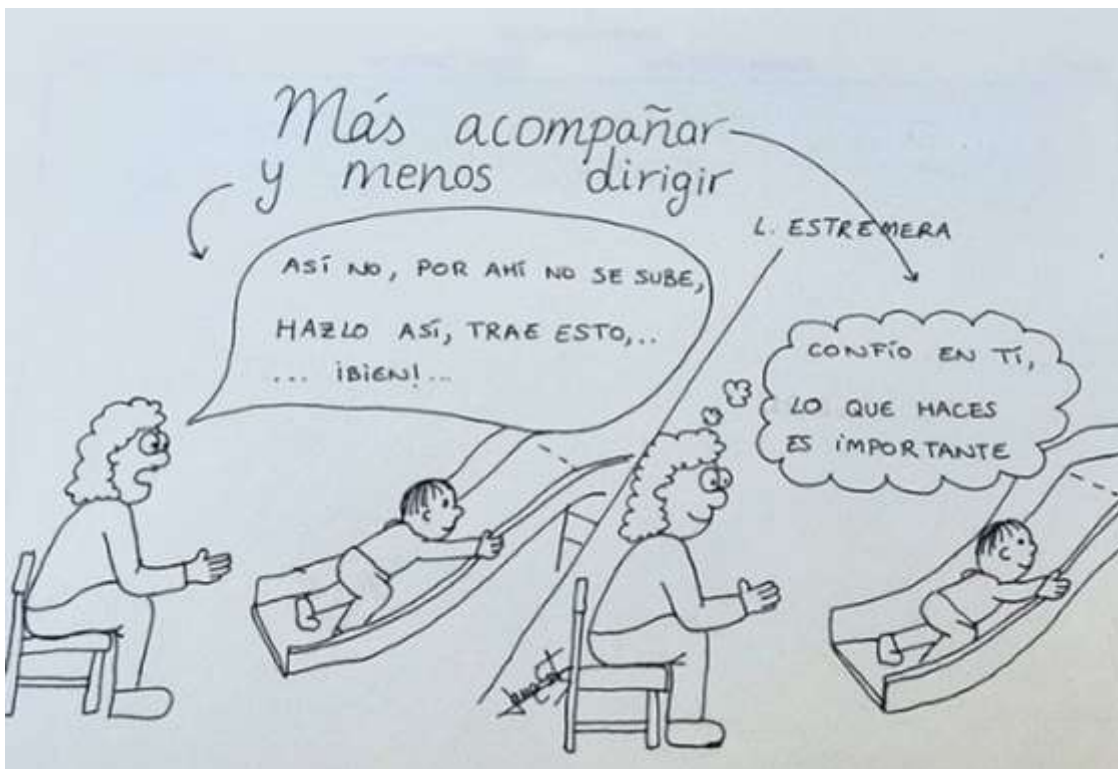 Más acompañar
y menos dirigir
L. ESTREMERA
ASÍ NO, POR AHÍ NO SE SUBE,
HAZLO ASÍ, TRAE ESTO,..
... ¡BIEN!...
CONFÍO EN TÍ,
LO QUE HACES
ES IMPORTANTE